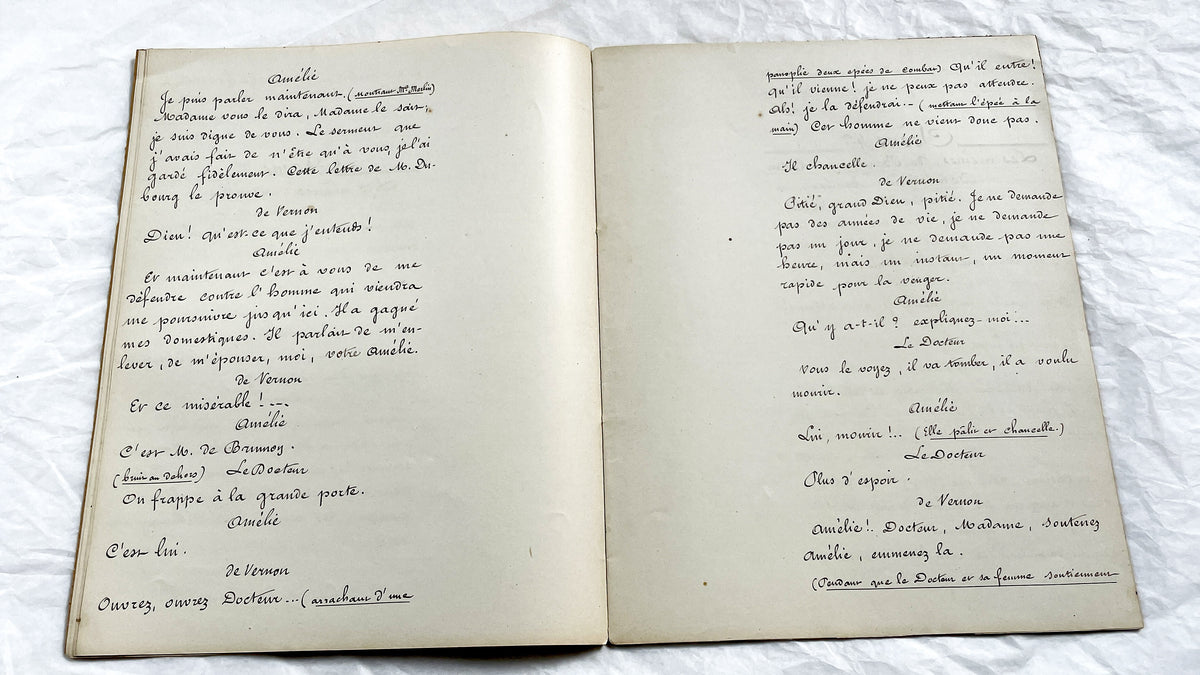 Amélie
Je puis parler maintenant. (montrant Me Merlin)
Madame vous le dira, Madame le sait,
je suis digne de vous. Le serment que
j'avais fait de n'être qu'à vous, je l'ai
gardé fidèlement. Cette lettre de M. Du-
bourg le prouve.
de Vernon
Dieu! qu'est-ce que j'entends!
Amélie
Et maintenant c'est à vous de me
défendre contre l'homme qui viendra
me poursuivre jusqu'ici. Il a gagné
mes domestiques. Il parlait de m'en-
lever, de m'épouser, moi, votre Amélie.
de Vernon
Et ce misérable!...
Amélie
C'est M. de Brunoy.
(bruit au dehors) Le Docteur
On frappe à la grande porte.
Amélie
C'est lui.
de Vernon
Ouvrez, ouvrez Docteur... (arrachant d'une
panoplie deux epées de combat) Qu'il entre!
qu'il vienne! je ne peux pas attendre.
Ah! je la défendrai... (mettant l'épée à la
main) Cet homme ne vient donc pas.
Amélie
Il chancelle.
de Vernon
Pitié, grand Dieu, pitié. Je ne demande
pas des années de vie, je ne demande
pas un jour, je ne demande pas une
heure, mais un instant, un moment
rapide pour la venger.
Amélie
Qu'y a-t-il? expliquez-moi...
Le Docteur
Vous le voyez, il va tomber, il a voulu
mourir.
Amélie
Lui, mourir!.. (Elle pâlit et chancelle.)
Le Docteur
Plus d'espoir.
de Vernon
Amélie!. Docteur, Madame, soutenez
Amélie, emmenez la.
(Pendant que le Docteur et sa femme soutiennent